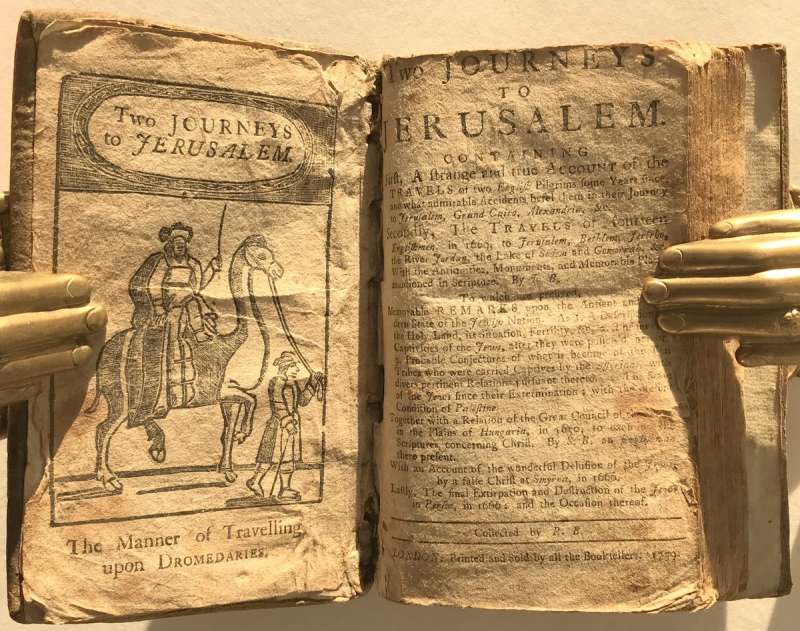 Two JOURNEYS
to JERUSALEM.
The Manner of Travelling
upon DROMEDARIES.
Two JOURNEYS
TO
JERUSALEM.
CONTAINING
First, A strange and true ACCOUNT of the
TRAVELS of two English Pilgrims some Years since
and what admirable Accidents befel them in their Journey
to Jerusalem, Grand-Cairo, Alexandria, &c.
Secondly, The TRAVELS of fourteen
Englishmen, in 1609, to Jerusalem, Bethlem, Jericho,
the River Jordan, the Lake of Sodom and Gomorrah, &c.
With the Antiquities, Monuments, and Memorable Places
mentioned in Scripture. By T. B.
To which are prefixed,
Memorable REMARKS upon the Antient and
dern State of the Jewish Nation: As 1. A Description
the Holy Land, its Situation, Fertility, &c. 2. The
Captivities of the Jews, after they were
3. Probable Conjectures of what is become of the
Tribes who were carried Captives by the Assyrians
divers pertinent Relations pursuant thereto.
of the Jews since their Extermination; with the
Condition of Palestine.
Together with a Relation of the Great Council of the
in the Plains of Hungaria, in 1650, to
Scriptures concerning Christ. By S. B. an
there present.
With an Account of the wonderful Delusion of the Jews,
by a false Christ at Smyrna, in 1666.
Lastly, The final Extirpation and Destruction of the Jews
in Persia, in 1666; and the Occasion thereof.
Collected by R. B.
LONDON: Printed and Sold by all the Booksellers.